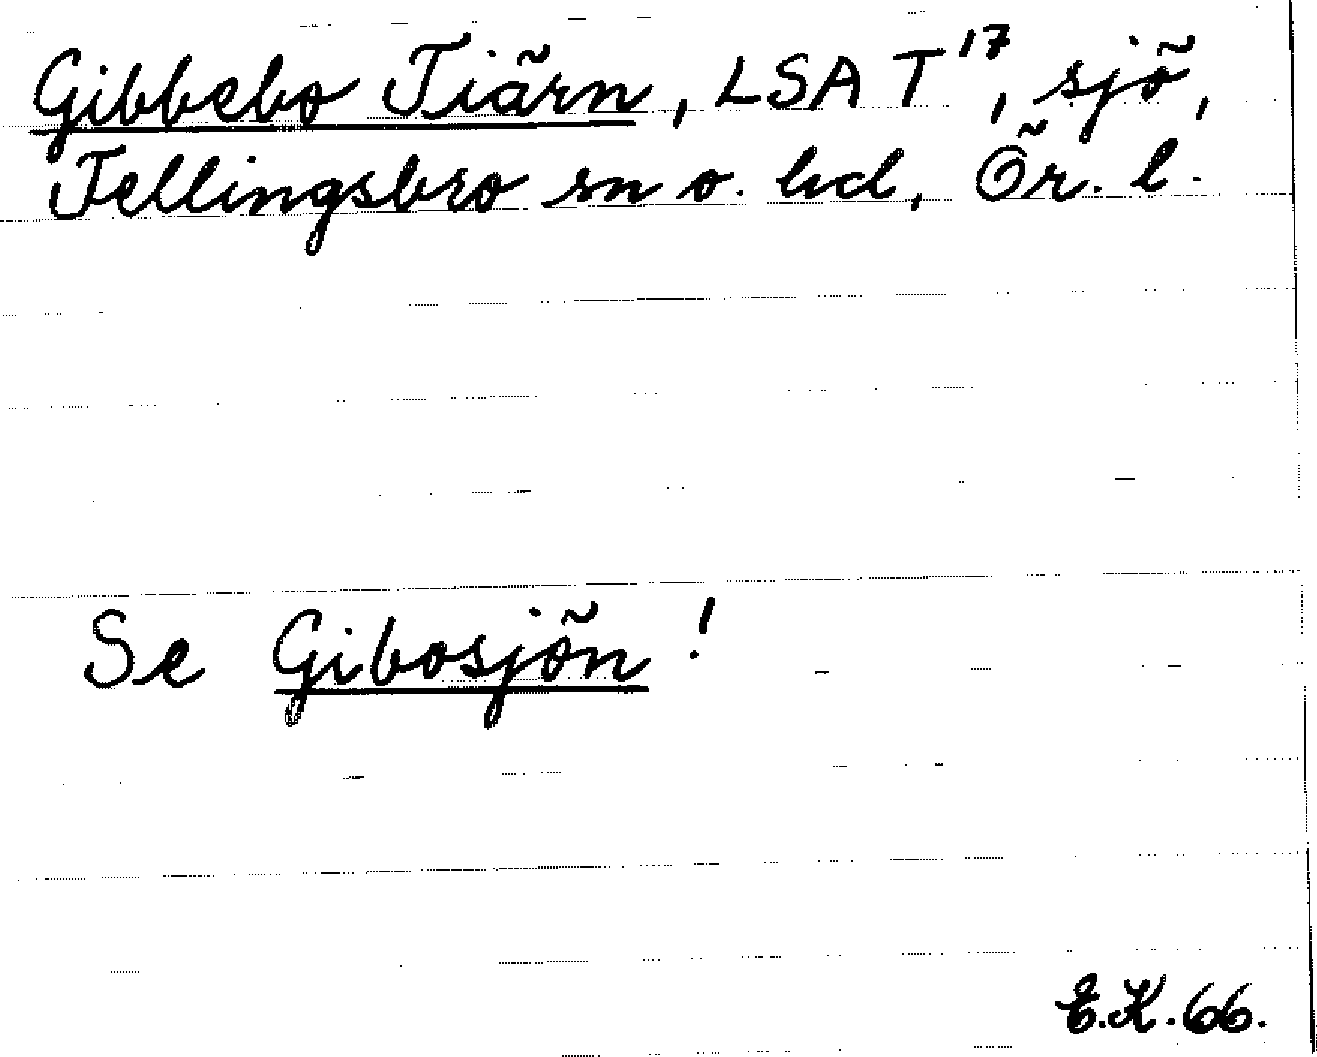 Gibbebo Tiärn, LSA T¹⁷, sjö,
Fellingsbro sn o. hd, Ör. l.
Se Gibosjön!
E.K. 66.